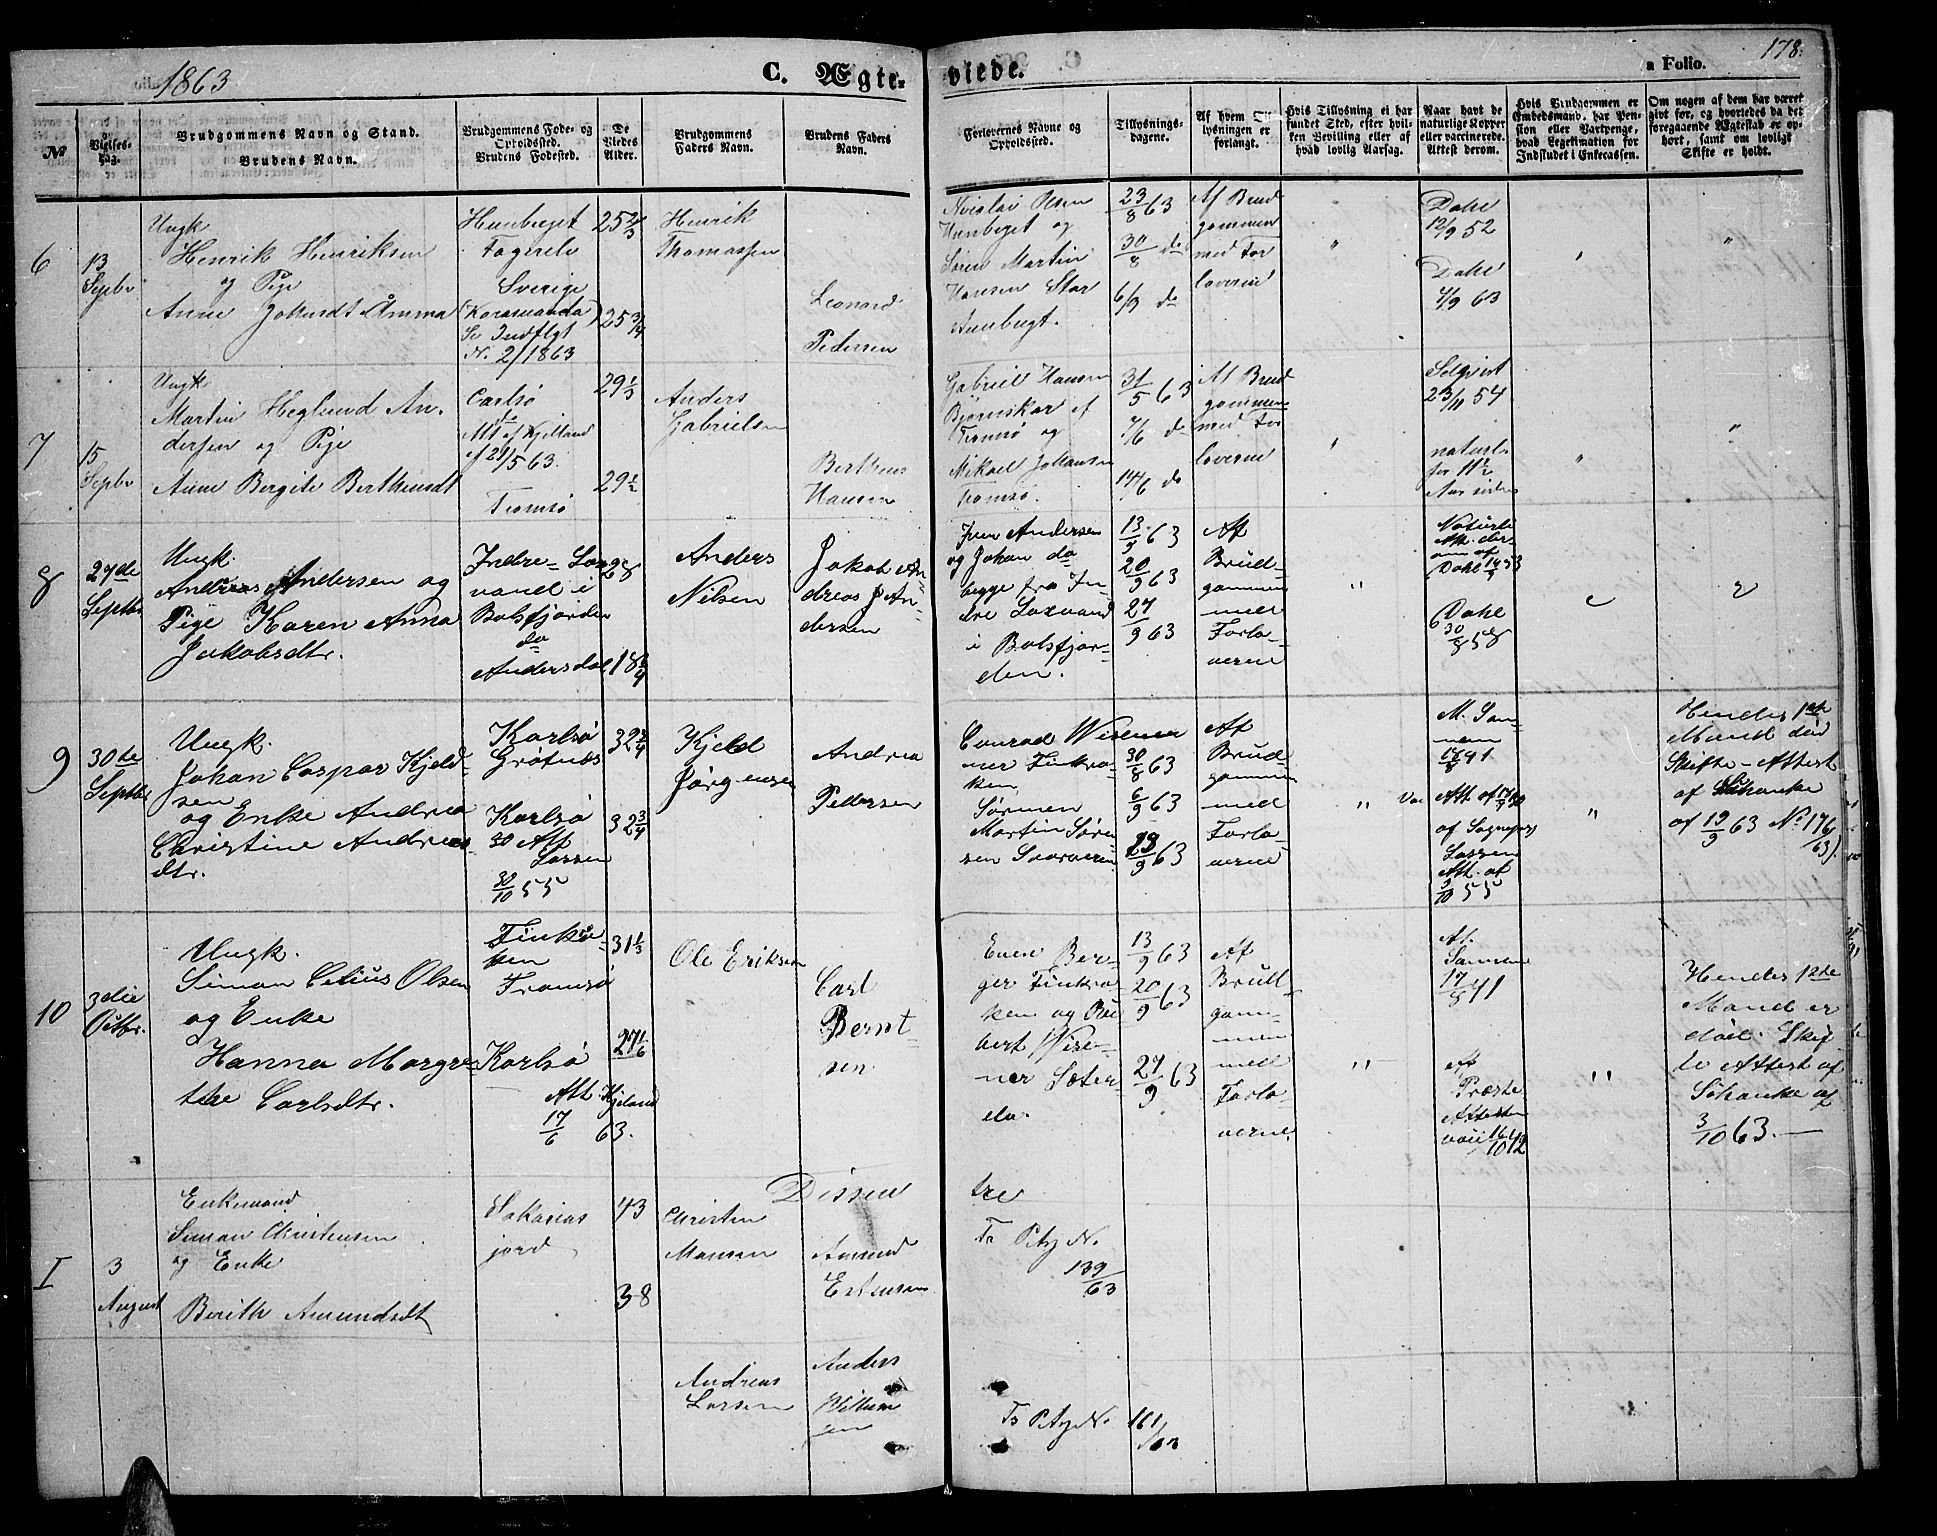 1863
C. Ægteviede.
a Folio. 178.
No
Vielses-
dag.
Brudgommens Navn og Stand.
Brudens Navn.
Brudgommens Føde- og
Opholdssted.
Brudens Fødested.
De
Viedes
Alder.
Brudgommens
Faders Navn.
Brudens Faders
Navn.
Forlovernes Navne og
Opholdssted.
Tillysnings-
dagene.
Af hvem Til-
lysningen er
forlangt.
Hvis Tillysning ei har
fundet Sted, efter hvil-
ken Bevilling eller af
hvad lovlig Aarsag.
Naar havt de
naturlige Kopper
eller vaccinerede.
Attest derom.
Hvis Brudgommen er
Embedsmand, har Pen-
sion eller Vartpenge,
hvad Legitimation for
Indskudet i Enkecassen.
Om nogen af dem har været
givt før, og hvorledes da det
foregaaende Ægteskab er op-
hørt, samt om lovligt
Skifte er holdt.
6
13
Septbr
Ungk
Henrik Henriksen
og Pige
Anne
Sverige
N. 2/1863
25 2/3
25 3/4
Henrik
Thomassen
Leonard
Pedersen
Olsen
og
Søren Martin
Hansen Stor
23/8 63
30/8 do
6/9 do
Af Brud
gommen
med For
loverne
Dahe
12/9 52
Dahe
4/9 63
7
15
Septbr
Ungk
Martin Heglund An-
dersen og Pige
Anne Bergite Berthinsdt
Carlsø
Att af Kjelland
af 21/5 63.
Tromsø
29 1/3
29 1/2
Anders
Gabrielsen
Hansen
Gabriel Hansen
Bjørnskar af
Tromsø og
Mikael Johansen
Tromsø.
31/5 63
7/6 do
14/6 do
Af Brud
gommen
med For
loverne
23/11 54
naturl.
for 11 1/2
Aar siden
8
27de
Septbr
Ungk.
Andreas Andersen og
Pige Karen Anna
Jakobsdtr.
Indre-Lax
vand i
Balsfjorden
do
Andersdal
28
18 1/4
Anders
Nilsen
Jakob An-
dreas J An-
dersen
Jens Andersen
og Johan do
begge fra In-
dre Laxvand
i Balsfjor-
den.
13/9 63
20/9 63
27/9 63
Af
Brud-
gommen
med
Forlo-
verne
Naturli
Att. der-
om af
Dahe
Dahe
30/8 58
9
30te
Septbr
Ungk.
Johan Caspar Kjeld-
sen
og Enke Andrea
Christine Andreas-
dtr.
Karlsø
Grøtnes
Karlsø
Att
Lassen
30/10 55
32 3/4
32 3/4
Kjeld
Jørgensen
Andrea
Pedersen
Conrad
ner Finkro-
ken
Sørmen
Martin Søren-
sen
30/8 63
6/9 63
Af
Brud
gommen
med
Forlo-
verne
17/8 41
Att.
af Sognepr
Lassen
Att. af
55
Hendes 1ste
Mand død
Skifte-Attest
af Schanke
af 19/9 63 No 176/63).
10
3die
Octbr.
Ungk.
Simon Celius Olsen
og Enke
Hanna Margre-
the Carlsdtr.
Finkro-
ken
Tromsø
Karlsø
Att. Kjeland
17/6 63.
31 1/3
27 1/6
Ole Eriksen
Carl
Bernt-
sen.
Even Ber-
ger Finkro-
ken og
13/9 63
20/9 63
27/9 63
Af
Brud-
gom-
men
med
Forlo-
verne
17/8 41
Af
Præste
Attesten
16/10 42
Hendes 1ste
Mand er
død. Skif-
te Attest af
Schanke af
3/10 63.
Dissentre
I
3
August
Enkemand
Simon Christensen
og Enke
Berith Amundsdt
Sakarias
jord
43
38
Christen
Mansen
Amund
Tr Ptg N.
139/63
Andreas
Larsen
Anders
Tr Ptg N. 161/63